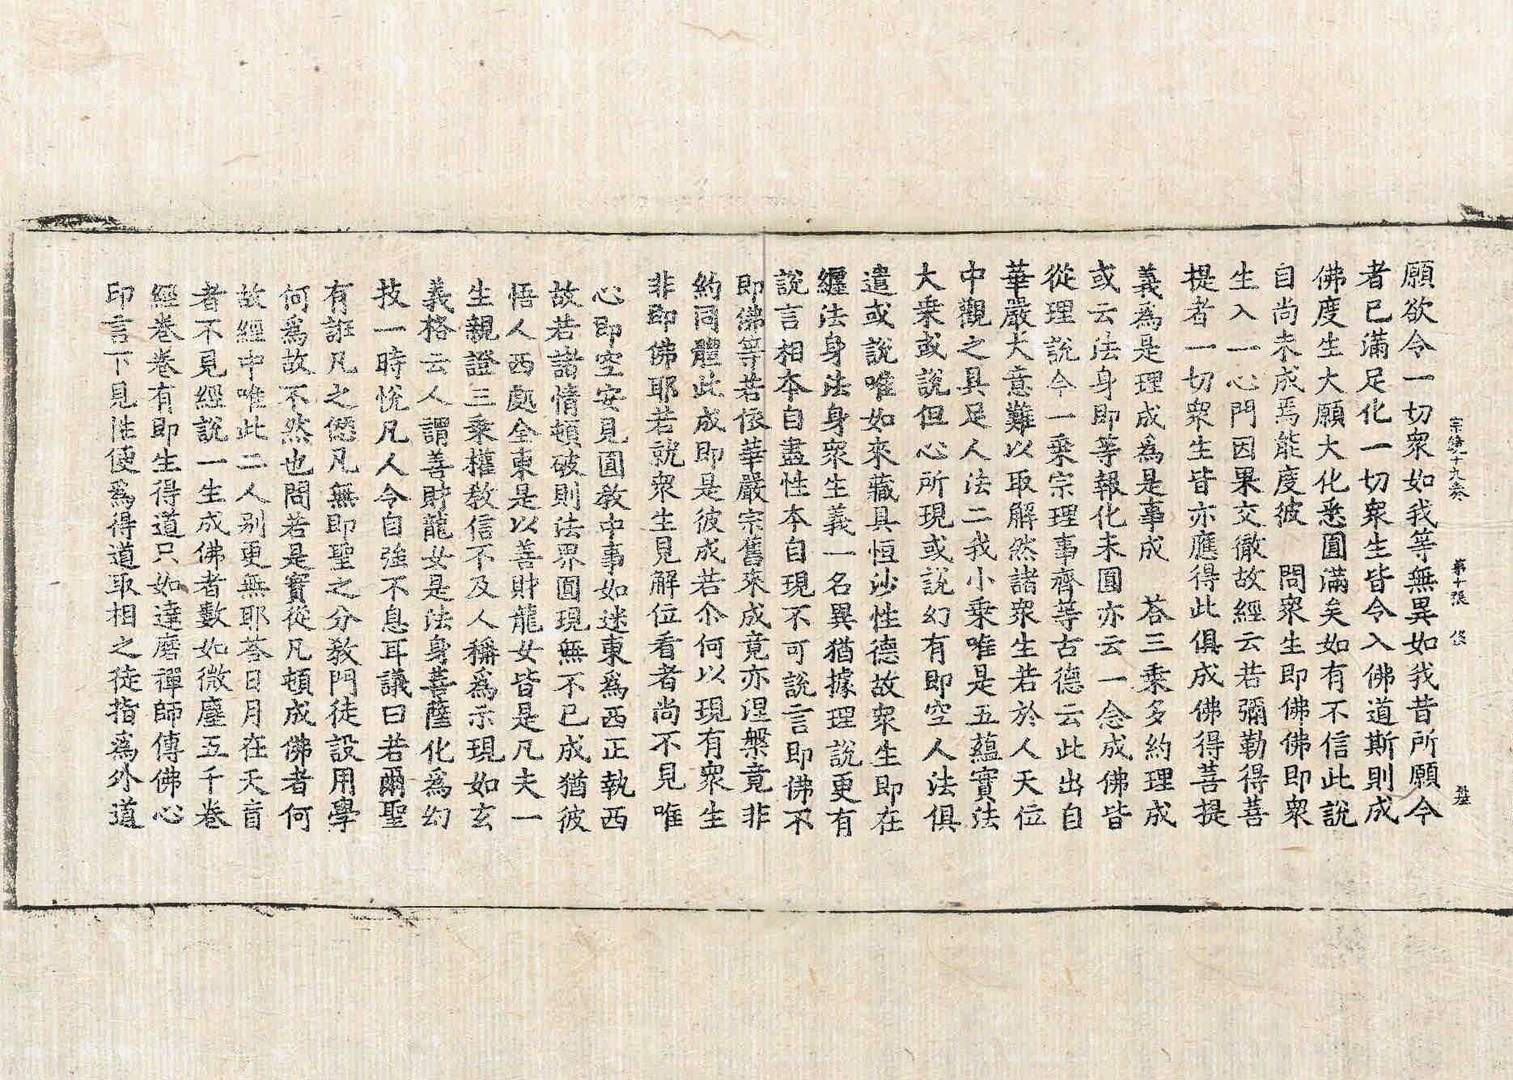 宗鏡十九卷　第十張
願欲令一切衆如我等無異如我昔所願今
者已滿足化一切衆生皆令入佛道斯則成
佛度生大願大化悉圓滿矣如有不信此說
自尚未成焉能度彼　問衆生即佛佛即衆
生入一心門因果交徹故經云若彌勒得菩
提者一切衆生皆亦應得此俱成佛得菩提
義爲是理成爲是事成　荅三乘多約理成
或云法身即等報化未圓亦云一念成佛皆
從理說今一乘宗理事齊等古德云此出自
華嚴大意難以取解然諸衆生若於人天位
中觀之具足人法二我小乘唯是五蘊實法
大乘或說但心所現或說幻有即空人法俱
遣或說唯如來藏具恒沙性德故衆生即在
纏法身法身衆生義一名異猶據理說更有
說言相本自盡性本自現不可說言即佛不
即佛等若依華嚴宗舊來成竟亦涅槃竟非
約同體此成即是彼成若尒何以現有衆生
非即佛耶若就衆生見解位看者尚不見唯
心即空安見圓教中事如迷東爲西正執西
故若諸情頓破則法界圓現無不已成猶彼
悟人西處全東是以善財龍女皆是凡夫一
生親證三乘權教信不及人稱爲示現如玄
義格云人謂善財龍女是法身菩薩化爲幻
技一時悅凡人令自強不息耳議曰若爾聖
有誑凡之愆凡無即聖之分教門徒設用學
何爲故不然也問若是實從凡頓成佛者何
故經中唯此二人別更無耶荅日月在天盲
者不見經說一生成佛者數如微塵五千卷
經卷卷有即生得道只如達磨禪師傳佛心
印言下見性便爲得道取相之徒指爲外道